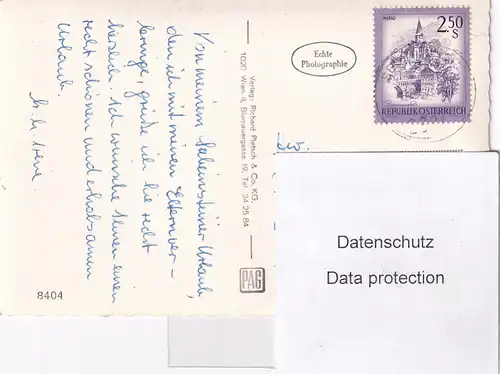 Von meinem Urlaub,
den ich mit meinen Eltern ver-
bringe, grüße ich Sie recht
herzlich. Ich wünsche Ihnen einen
recht schönen und erholsamen
Urlaub.
Echte
Photographie
Verlag: Richard Pietsch & Co. KG.
1020 Wien II, Blumauergasse 19, Tel. 24 25 84
PAG
8404
MURAU
2.50
S
Steiermark
REPUBLIK ÖSTERREICH
Datenschutz
Data protection